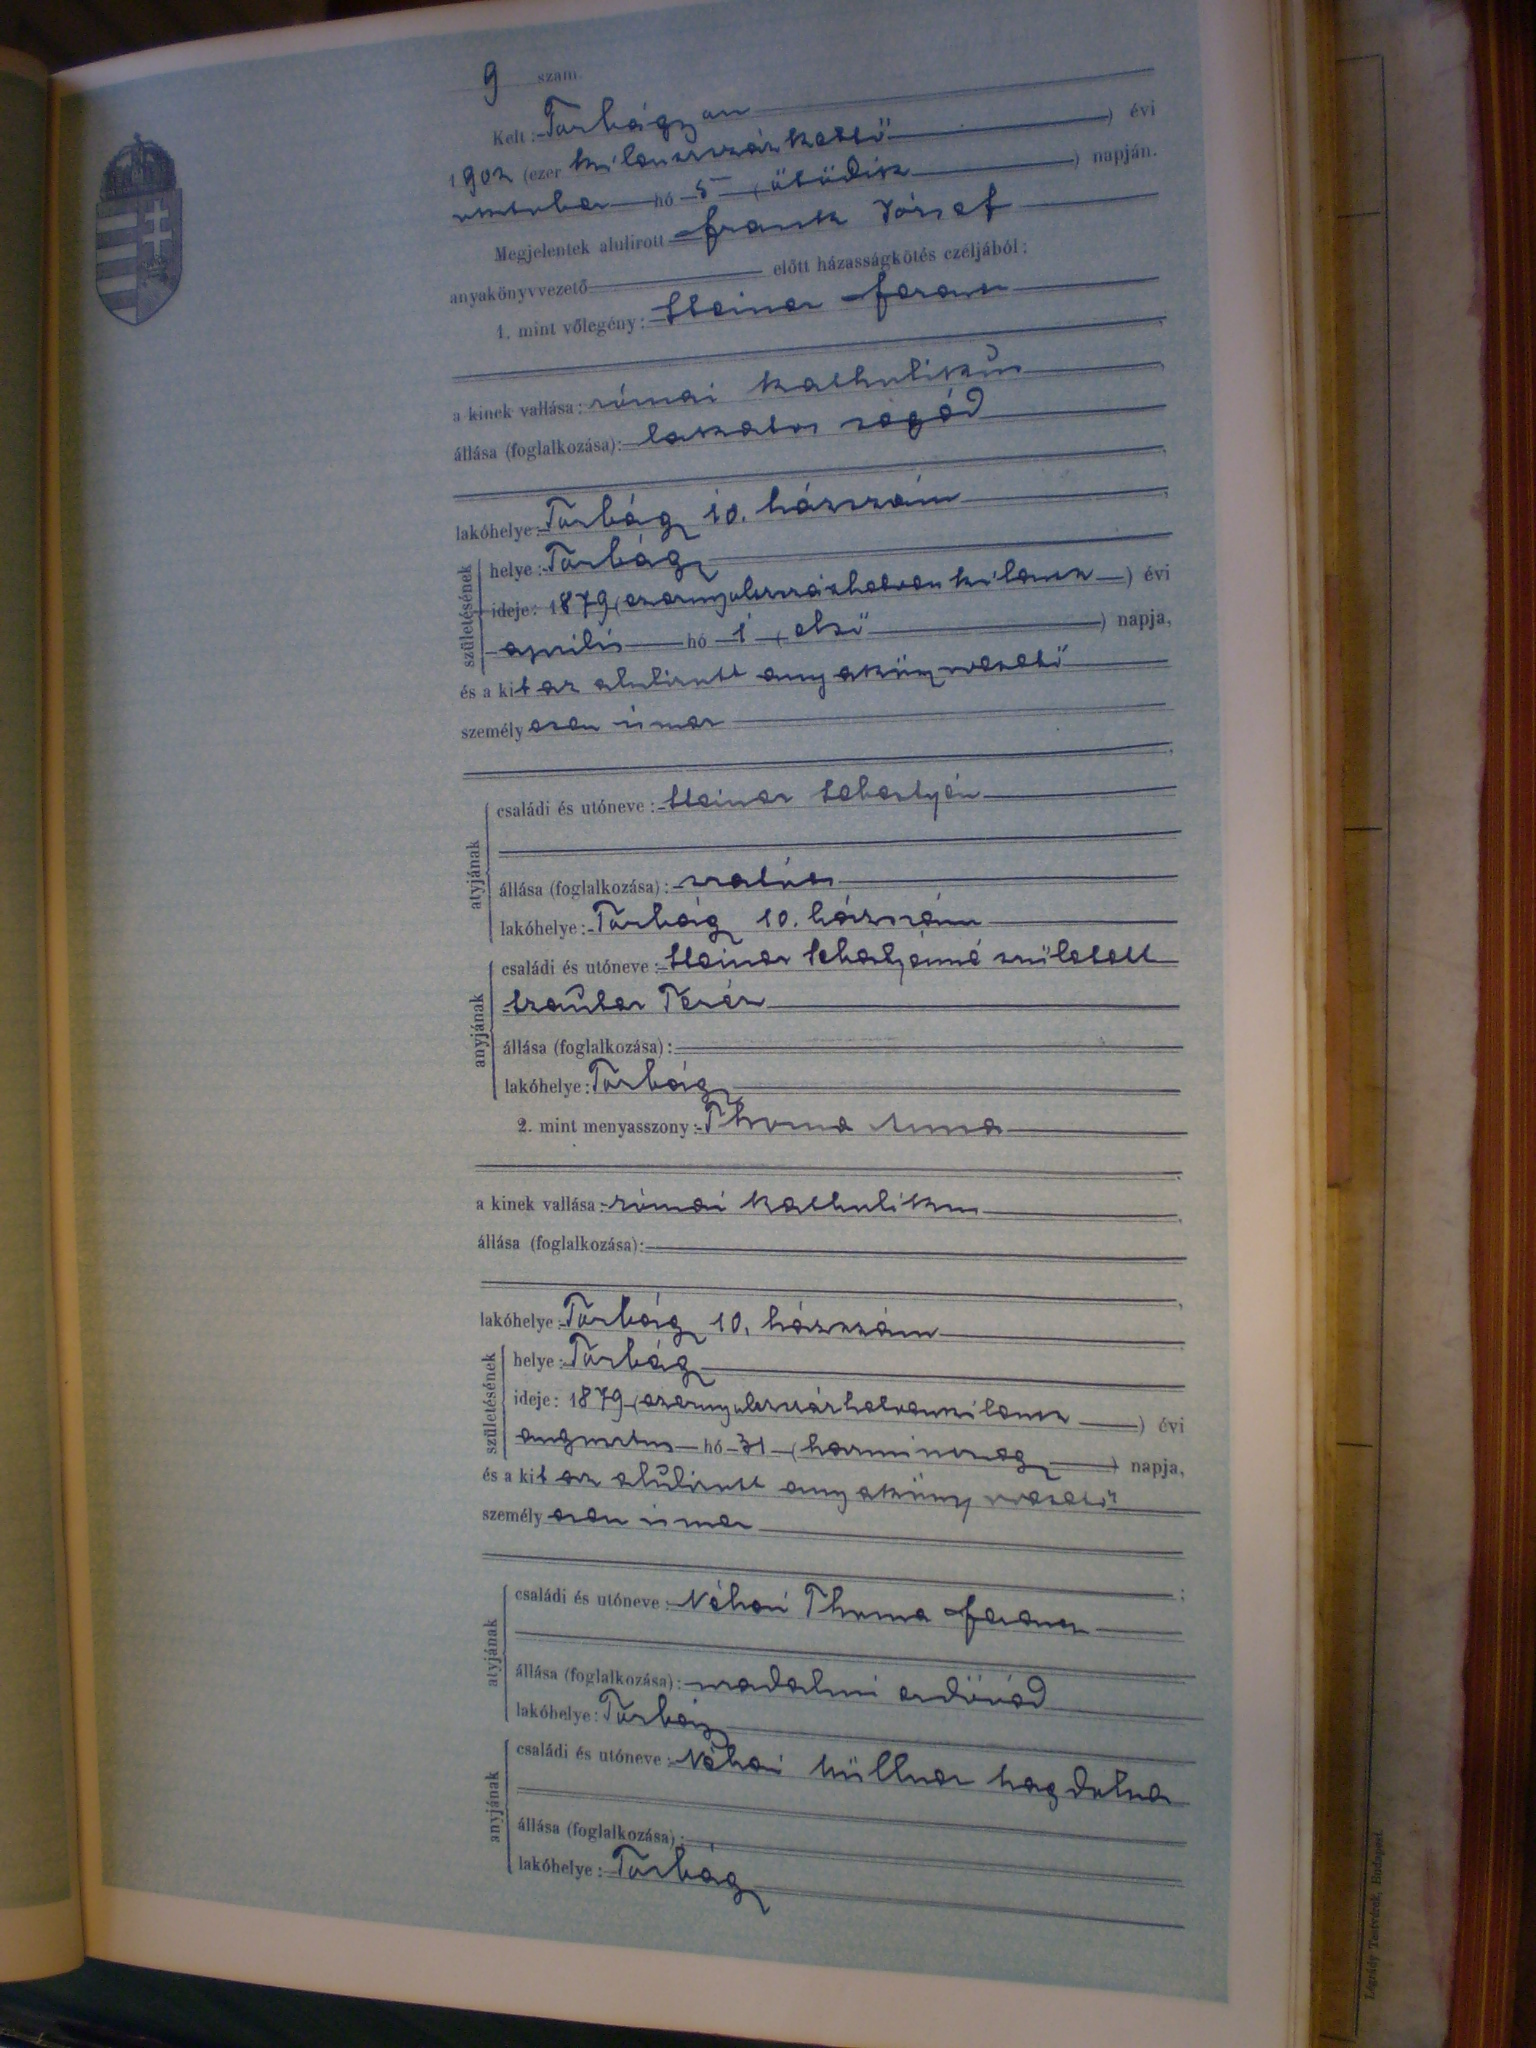 9 szám.
Kelt: Torbágyon
1902 (ezer kilenszázkettő) évi
október hó 5 (ötödik) napján.
Megjelentek alulirott Frank József
anyakönyvvezető előtt házasságkötés czéljából:
1. mint vőlegény: Steiner Ferenc
a kinek vallása: római katholikus
állása (foglalkozása): lakatos segéd
lakóhelye: Torbágy 10. házszám
születésének
helye: Torbágy
ideje: 1879 (ezernyolcszázhetvenkilenc) évi
április hó 1 (első) napja,
és a kit az alulirott anyakönyvvezető
személyesen ismer
atyjának
családi és utóneve: Steiner Sebestyén
állása (foglalkozása):
lakóhelye: Torbágy 10. házszám
anyjának
családi és utóneve: Steiner Sebestyénné született
Szauter Teréz
állása (foglalkozása):
lakóhelye: Torbágy
2. mint menyasszony: Thoma Anna
a kinek vallása: római katholikus
állása (foglalkozása):
lakóhelye: Torbágy 10. házszám
születésének
helye: Torbágy
ideje: 1879 (ezernyolcszázhetvenkilenc) évi
augusztus hó 31 (harmincegy) napja,
és a kit az alulirott anyakönyvvezető
személyesen ismer
atyjának
családi és utóneve: Néhai Thoma Ferenc
állása (foglalkozása): uradalmi erdővéd
lakóhelye: Torbágy
anyjának
családi és utóneve: Néhai Müllner Magdolna
állása (foglalkozása):
lakóhelye: Torbágy
Légrády Testvérek, Budapest